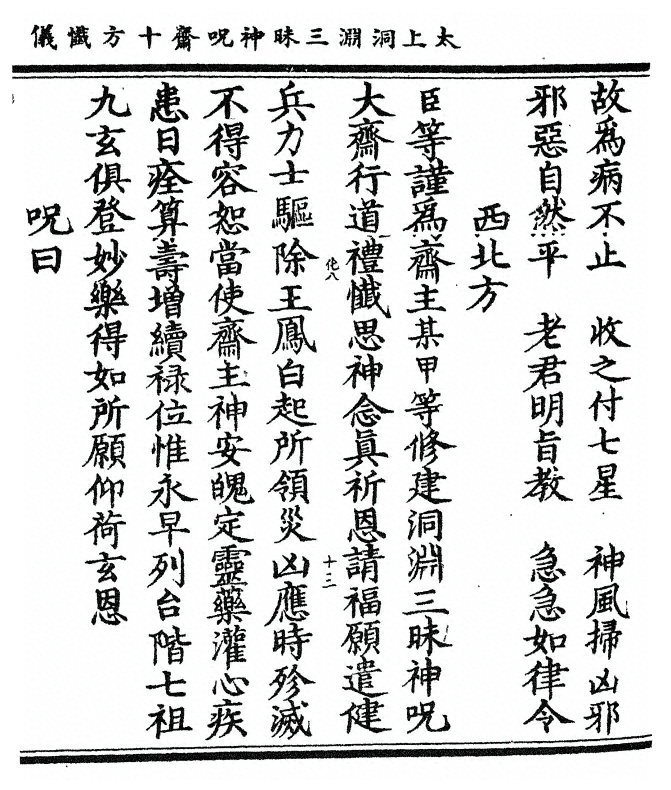 太上洞淵三昧神呪齋十方懺儀
故爲病不止　收之付七星　神風掃凶邪
邪惡自然平　老君明旨教　急急如律令
西北方
臣等謹爲齋主某甲等修建洞淵三昧神呪
大齋行道禮懺思神念眞祈恩請福願遣健
兵力士驅除王鳳白起所領災凶應時殄滅
不得容恕當使齋主神安魄定靈藥灌心疾
患日痊算壽增續禄位惟永早列台階七祖
九玄俱登妙樂得如所願仰荷玄恩
呪曰
十三